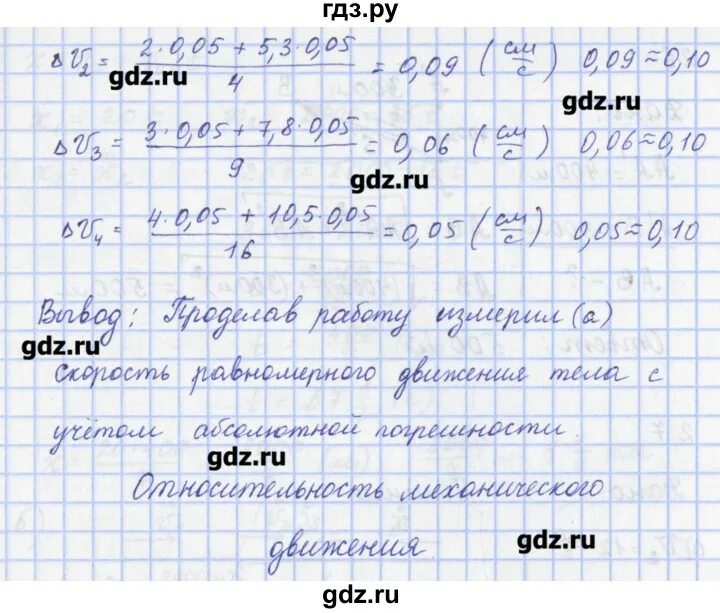 гдз.ру
ΔV₂ = (2·0,05 + 5,3·0,05)/4 = 0,09 (см/с) 0,09≈0,10
gdz.ru
gdz.ru
ΔV₃ = (3·0,05 + 7,8·0,05)/9 = 0,06 (см/с) 0,06≈0,10
gdz.ru
ΔV₄ = (4·0,05 + 10,5·0,05)/16 = 0,05 (см/с) 0,05≈0,10
Вывод: Проделав работу измерил(а)
gdz.ru
скорость равномерного движения тела с
учётом абсолютной погрешности.
gdz.ru
Относительность механического
движения
gdz.ru
gdz.ru